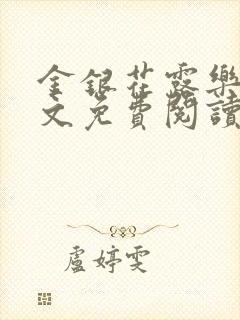 金銀花露樂
文免費閱讀
盧婷雯